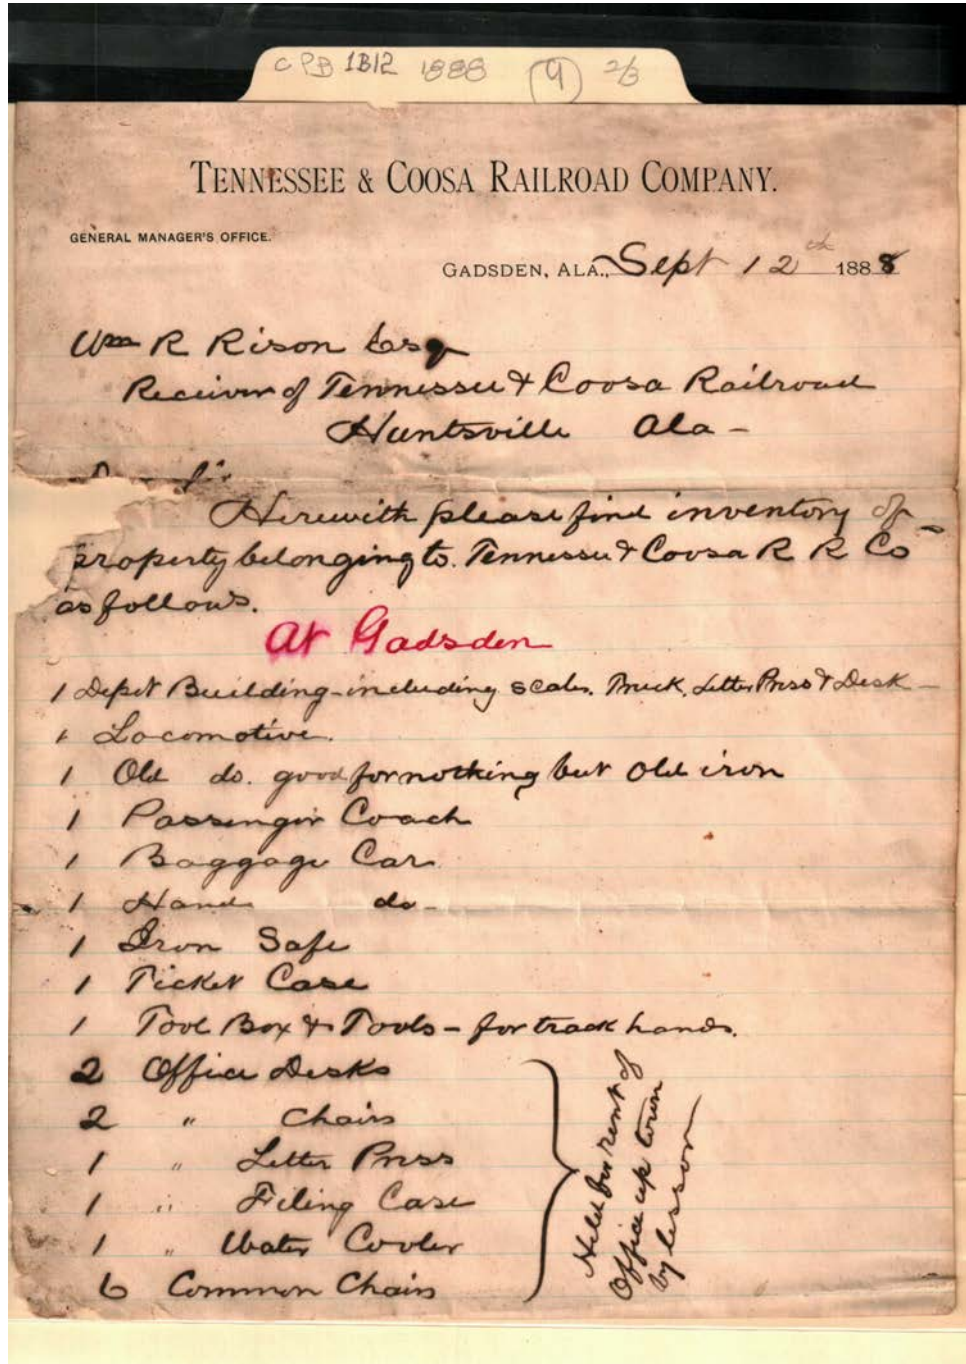 CPB 1B12 1888 (9) 2/3
TENNESSEE & COOSA RAILROAD COMPANY.
GENERAL MANAGER'S OFFICE.
GADSDEN, ALA., Sept 12th 1888
Wm R Rison Esq
Receiver of Tennessee & Coosa Railroad
Huntsville Ala -
Sir
Herewith please find inventory of
property belonging to Tennessee & Coosa R R Co
as follows.
At Gadsden
1 Depot Building - including scales, Truck, Letter Press & Desk -
1 Locomotive.
1 Old do. good for nothing but old iron
1 Passenger Coach
1 Baggage Car
1 Hand do -
1 Iron Safe
1 Ticket Case
1 Tool Box & Tools - for track hands.
2 Office Desks
2 " Chairs
1 " Letter Press
1 " Filing Case
1 " Water Cooler
6 Common Chairs
Held for rent of
Office up town
by lessor